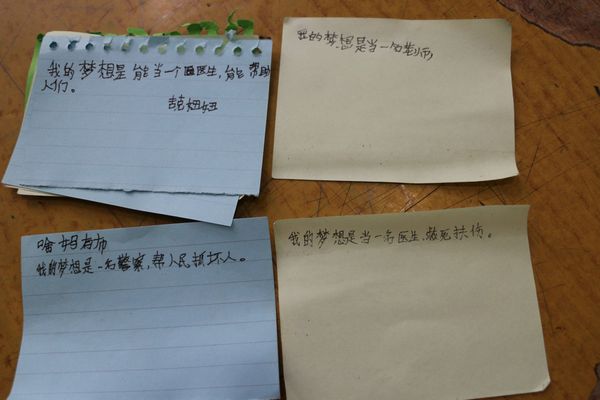 我的梦想是能当一个医生,能帮助
人们。
妞妞
我的梦想是当一名老师
我的梦想是一名警察,帮人民抓坏人。
我的梦想是当一名医生,救死扶伤。